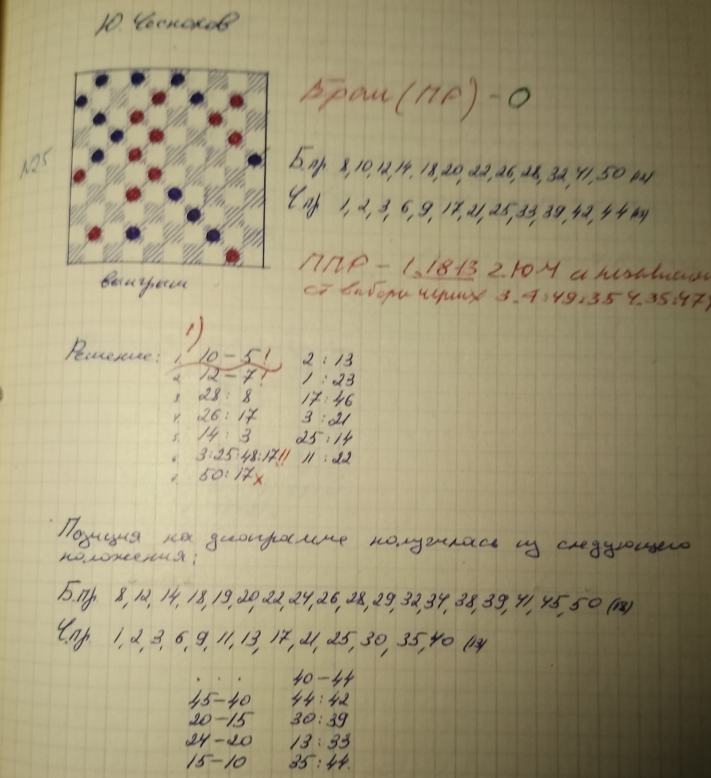 Ю. Чесноков
Брак (ПР) - О
№25
Б.пр 8, 10, 12, 14, 18, 20, 22, 26, 28, 32, 41, 50 (12)
Ч.пр 1, 2, 3, 6, 9, 17, 21, 25, 33, 39, 42, 44 (12)
выигрыш
ППР - 1. 18-13 2. 10-4 и независим
от выбора черных 3. 4:49:35 4. 35:47
1)
Решение: 1. 10-5! 2:13
2. 12-7! 1:23
3. 28:8 17:46
4. 26:17 3:21
5. 14:3 25:14
6. 3:25:48:17!! 11:22
7. 50:17x
Позиция на диаграмме получилась из следующего
положения:
Б.пр. 8, 12, 14, 18, 19, 20, 22, 24, 26, 28, 29, 32, 34, 38, 39, 41, 45, 50 (18)
Ч.пр. 1, 2, 3, 6, 9, 11, 13, 17, 21, 25, 30, 35, 40 (13)
. . . 40-44
45-40 44:42
20-15 30:39
24-20 13:33
15-10 35:44